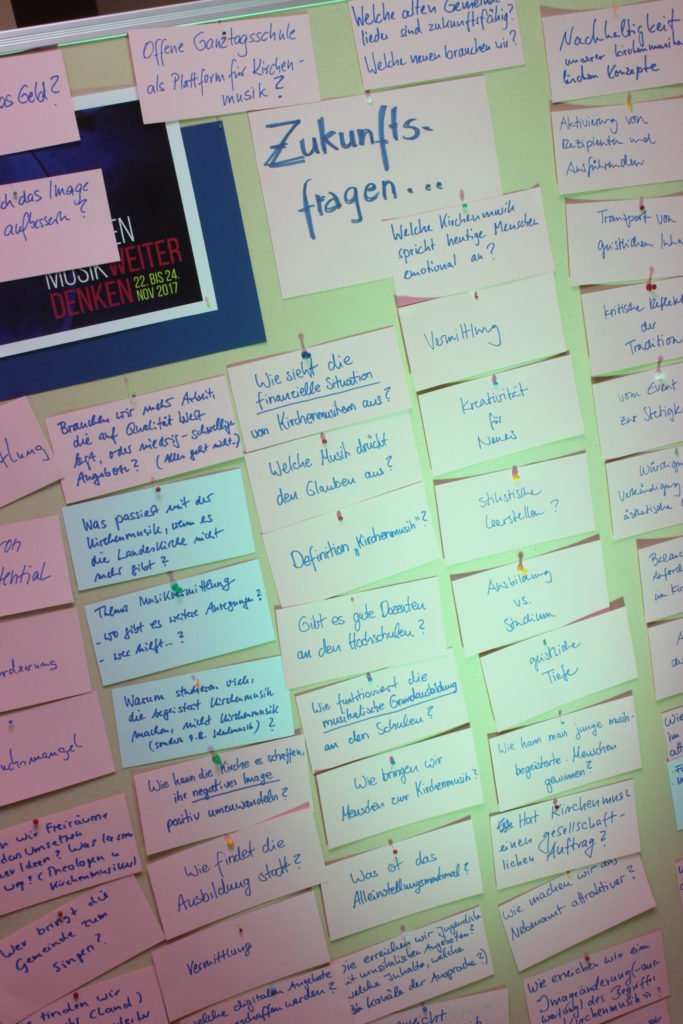 Offene Ganztagsschule
als Plattform für Kirchen-
musik?
Welche alten Gemeinde
lieder sind zukunftsfähig?
Welche neuen brauchen wir?
Nachhaltigkeit
unserer kirchenmusika
lischen Konzepte
das Geld?
das Image
aufbessern?
EN
MUSIK WEITER
DENKEN 22. BIS 24.
NOV 2017
Zukunfts-
fragen...
Aktivierung von
Rezipienten und
Ausführenden
Transport von
geistlichen Inha
kritische Reflekt
der
Tradition
vom Event
zur Stetigk
Würdig
Verkündigung
ästhetische
Balance
in Kir
Welche Kirchenmusik
spricht heutige Menschen
emotional an?
Vermittlung
Kreativität
für
Neues
Stilistische
Leerstellen?
Ausbildung
vs.
Studium
geistliche
Tiefe
Wie kann man junge musik-
begeisterte Menschen
gewinnen?
Hat Kirchenmusi
einen gesellschaft-
lichen Auftrag?
Wie machen wir das
Nebenamt attraktiver?
Wie erreichen wir ein
Imageänderung (-aus-
weitung) des Begriffes
Kirchenmusik"?
Wie sieht die
finanzielle Situation
von Kirchenmusikern aus?
Welche Musik drückt
den Glauben aus?
Definition „Kirchenmusik"?
Gibt es gute Dozenten
an den Hochschulen?
Wie funktioniert die
musikalische Grundausbildung
an den Schulen?
Wie bringen wir
Menschen zur Kirchenmusik?
Was ist das
Alleinstellungsmerkmal?
Wie erreichen wir Jugendliche
mit musikalischen Angeboten?
(welche Inhalte, welche
Kanäle der Ansprache?)
Brauchen wir mehr Arbeit,
die auf Qualität Wert
legt, oder niedrig-schwellige
Angebote? (Alles geht nicht...)
Was passiert mit der
Kirchenmusik, wenn es
die Landeskirche nicht
mehr gibt?
Thema Musikvermittlung
- wo gibt es weitere Anregungen?
- wer hilft...?
Warum studieren viele,
die begeistert Kirchenmusik
machen, nicht Kirchenmusik
(sondern z.B. Schulmusik)?
Wie kann die Kirche es schaffen,
ihr negatives Image
positiv umzuwandeln?
Wie findet die
Ausbildung statt?
Vermittlung
welche digitalen Angebote
schaffen werden?
tlung
von
tential
rderung
chsmangel
en wir Freiräume
das Umsetzen
er Ideen? Was lassen
weg? (Theologen u
Kirchenmusiker)
Wer bringt die
Gemeinde zum
Singen?
finden wir
(Land)